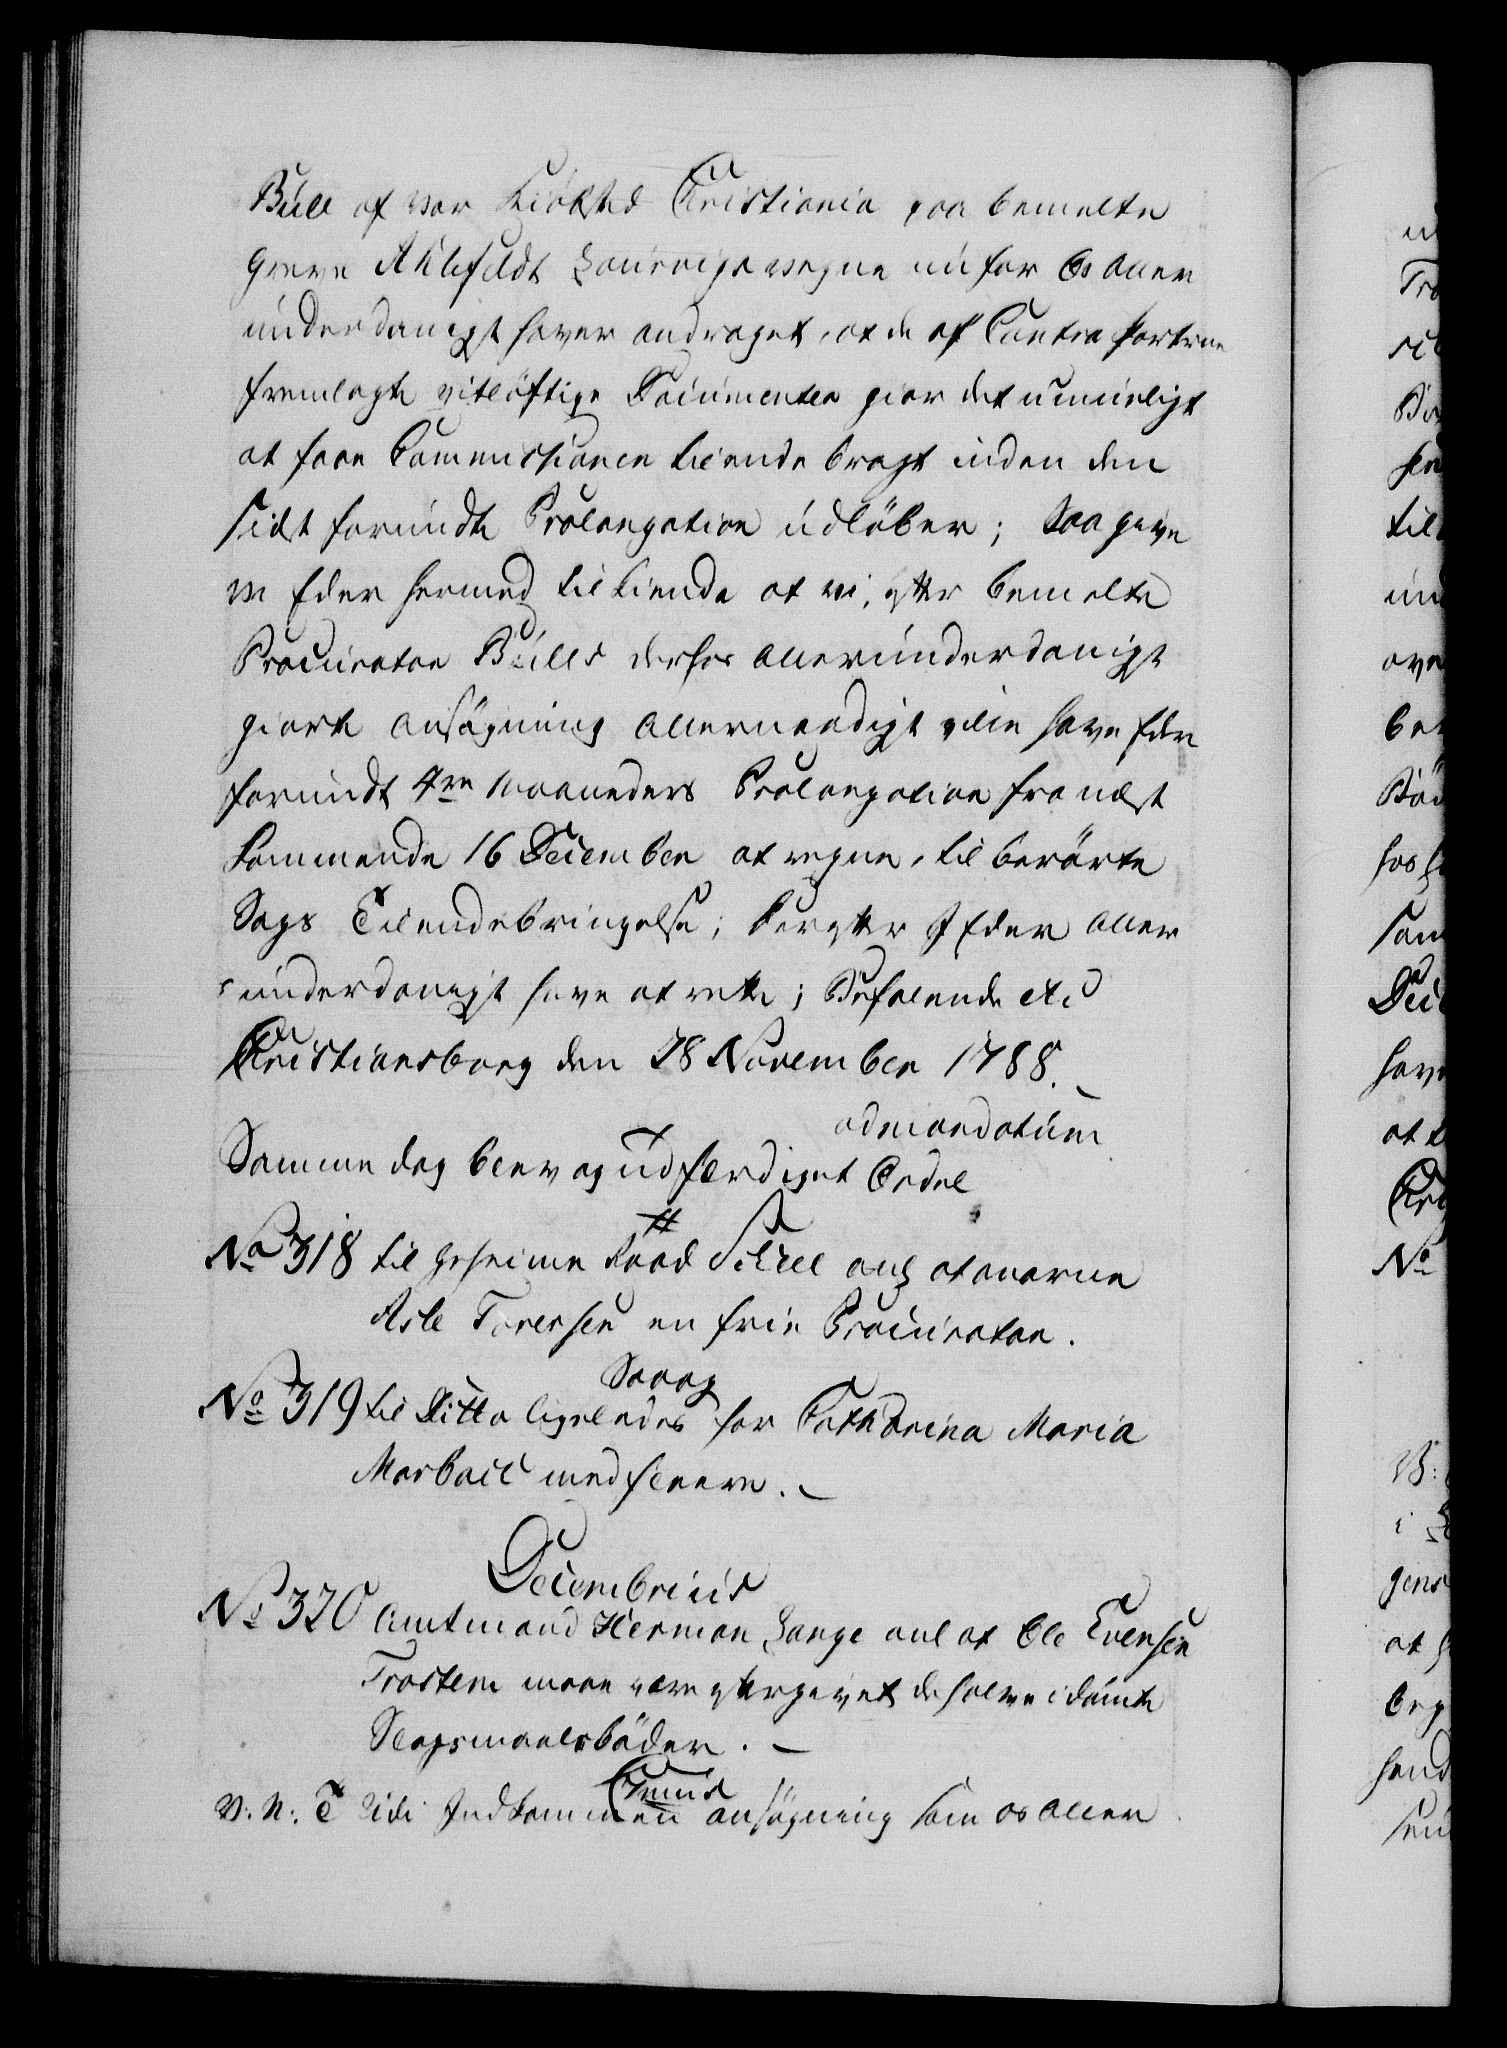 Bull af vor Kiöbsted Christiania paa bemelte
Greve Ahlefeldt Laurvigs vegne nu for Os aller
underdanigst haver andraget, at de af Contra Parterne
fremlagte vitlöftige Documenter giør det umueligt
at faae Commissionen tilende bragt inden den
sidst forundte Prolongation udlöber; Saa give
vi Eder hermed tilkiende at vi, efter bemelte
Procurator Bulls derfor allerunderdanigst
giorte Ansögning allernaadigst ville have Eder
forundt 4re Maaneders Prolongation fra næst
kommende 16 December at regne, til berörte
Sags Tilendebringelse; Derefter I Eder aller
underdanigst have at rette; Befalende etc
Christiansborg den 28 November 1788.
ad mandatum
Samme dag blev og udfærdiget Ordre
No 318 til Geheime Raad Scheel anl at anordne
Asle Toresen en frie Procurator.
Saaog
No 319 til Ditto ligeledes for Cathdrina Maria
Marbail med fleere.
Decembriis
No 320 Amtmand Herman Lange anl at Ole Evensen
Trostem maae være eftergivet de halve idömte
Slagsmaalsböder.
V: N: T Vidi Indkommen ansögning som os aller